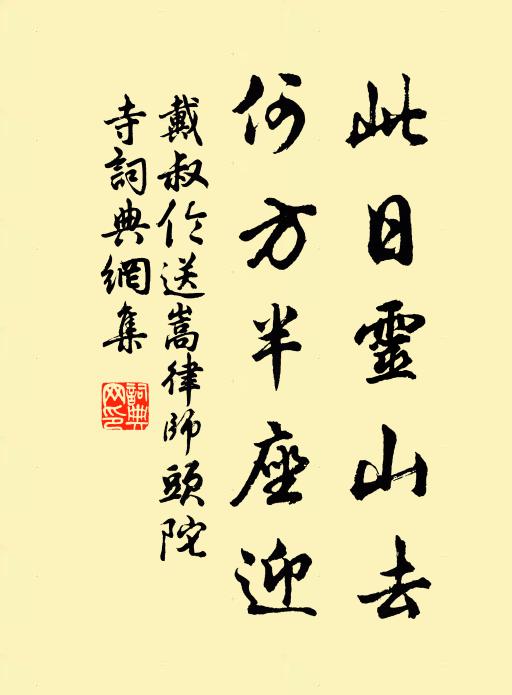 此日靈山去
何方半座迎
戴叔伦送嵩律師頭陀
寺詞典網集
詞典
网印